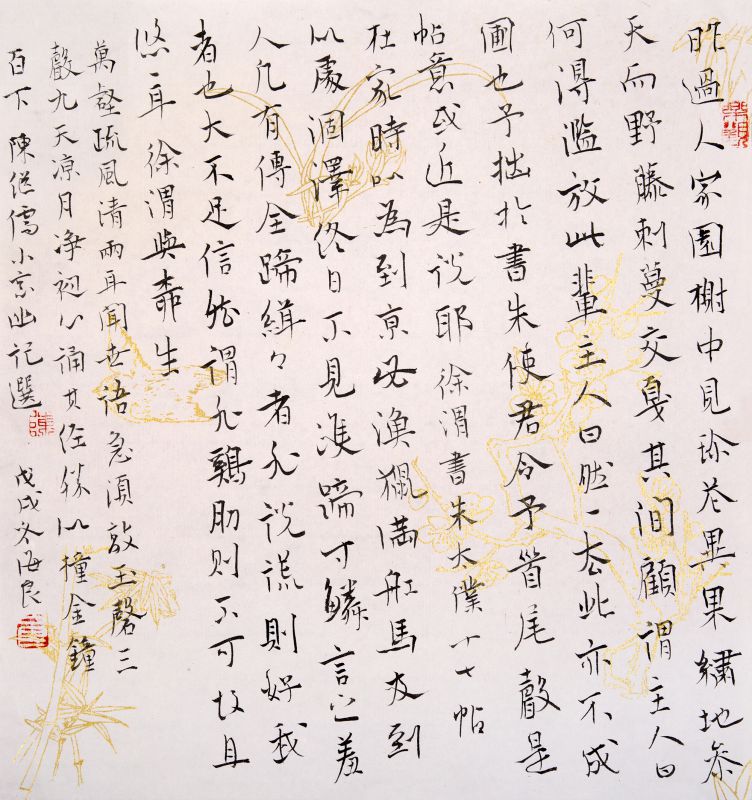 昨過人家園榭中見珍花異果繡地參
天而野藤刺蔓交戛其間顧謂主人曰
何得濫放此輩主人曰然然去此亦不成
圃也予拙於書朱使君令予首尾觳是
帖意或近是說耶 徐渭書朱太僕十七帖
在家時以為到京必漁獵滿船馬及到
似處涸澤終日不見隻蹄寸鱗言之羞
人凡有傳全蹄緝緝者凡說謊則好我
者也大不足信然謂凡鷄肋則不可故且
悠悠耳 徐渭與柳生
萬壑疏風清兩耳聞世語急須敲玉磬三
聲九天凉月净初心誦其經勝似撞金鐘
百下 陳繼儒小窗幽記選
戊戌冬海良